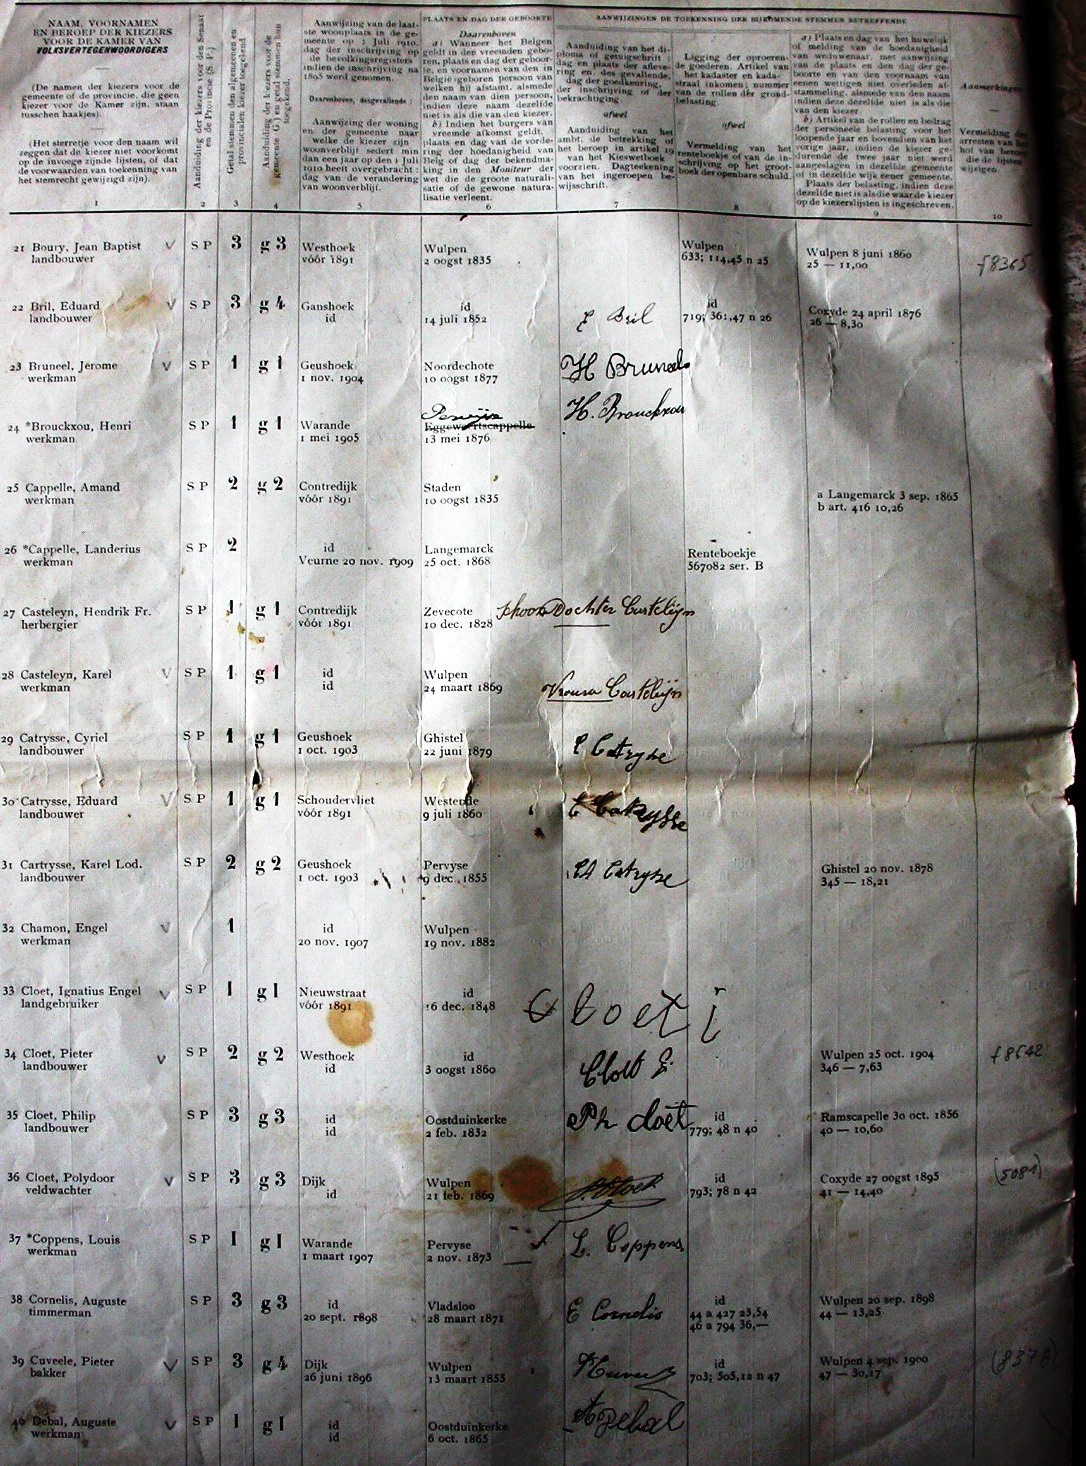 NAAM, VOORNAMEN
EN BEROEP DER KIEZERS
VOOR DE KAMER VAN
VOLKSVERTEGENWOORDIGERS
(De namen der kiezers voor de
gemeente of de provincie, die geen
kiezer voor de Kamer zijn, staan
tusschen haakjes).
(Het sterretje voor den naam wil
zeggen dat de kiezer niet voorkomt
op de invoege zijnde lijsten, of dat
de voorwaarden van toekenning van
het stemrecht gewijzigd zijn).
1
Aanduiding der kiezers voor den Senaat
en de Provincie (S. P.)
2
Getal stemmen den algemeenen en
provincialen kiezer toegekend
3
Aanduiding der kiezers voor de
Gemeente G.) en getal stemmen hun
toegekend.
4
Aanwijzing van de laat-
ste woonplaats in de ge-
meente op 1 Juli 1910,
dag der inschrijving op
de bevolkingsregisters
indien de inschrijving na
1895 werd genomen.
Daarenboven, desgevallende :
Aanwijzing der woning
en der gemeente naar
welke de kiezer zijn
woonverblijf sedert min
dan een jaar op den 1 Juli
1910 heeft overgebracht :
dag van de verandering
van woonverblijf.
5
PLAATS EN DAG DER GEBOORTE
Daarenboven
a) Wanneer het Belgen
geldt in den vreemden gebo-
ren, plaats en dag der geboor-
te, en voornamen van den in
Belgie geboren persoon van
welken hij afstamt, alsmede
den naam van dien persoon,
indien deze naam dezelfde
niet is als die van den kiezer.
b) Indien het burgers van
vreemde afkomst geldt,
plaats en dag van de vorde-
ring der hoedanigheid van
Belg of dag der bekendma-
king in den Moniteur der
wet die de groote naturali-
satie of de gewone natura-
lisatie verleent.
6
AANWIJZINGEN DE TOEKENNING DER BIJKOMENDE STEMMEN BETREFFENDE
Aanduiding van het di-
ploma of getuigschrift :
dag en plaats der afleve-
ring en, des gevallende,
dag der goedkeuring,
der inschrijving of der
bekrachtiging
ofwel
Aanduiding van het
ambt, de betrekking of
het beroep in artikel 19
van het Kieswetboek
voorzien. Dagteekening
van het ingeroepen be-
wijsschrift.
7
Ligging der onroeren-
de goederen. Artikel van
het kadaster en kada-
straal inkomen; nummer
van de rollen der grond-
belasting.
ofwel
Vermelding van het
renteboekje of van de in-
schrijving op het groot-
boek der openbare schuld.
8
a) Plaats en dag van het huwelijk
of melding van de hoedanigheid
van weduwenaar, met aanwijzing
van de plaats en den dag der ge-
boorte en van den voornaam van
den wettigen niet overleden af-
stammeling, alsmede van den naam
indien deze dezelfde niet is als die
van den kiezer.
b) Artikel van de rollen en bedrag
der personeele belasting voor het
loopende jaar en bovendien van het
vorige jaar, indien de kiezer ge-
durende de twee jaar niet werd
aangeslagen in dezelfde gemeente
of in dezelfde wijk eener gemeente.
Plaats der belasting, indien deze
dezelfde niet is als die waar de kiezer
op de kiezerslijsten is ingeschreven.
9
Aanmerkingen
Vermelding der
arresten van het
hof van beroep
die de lijsten
wijzigen
10
21 Boury, Jean Baptist V S P 3 g 3 Westhoek Wulpen Wulpen Wulpen 8 juni 1860 f 8365
landbouwer vóór 1891 2 oogst 1835 633; 114,45 n 25 25 — 11,00
22 Bril, Eduard V S P 3 g 4 Ganshoek id E Bril id Coxyde 24 april 1876
landbouwer id 14 juli 1852 719; 361,47 n 26 26 — 8,30
23 Bruneel, Jerome V S P 1 g 1 Geushoek Noordechote H Bruneel
werkman 1 nov. 1904 10 oogst 1877
Pervijze
24 *Brouckxou, Henri S P 1 g 1 Warande Eggewaertscappelle H. Brouckxou
werkman 1 mei 1905 13 mei 1876
25 Cappelle, Amand S P 2 g 2 Contredijk Staden a Langemarck 3 sep. 1865
werkman vóór 1891 10 oogst 1835 b art. 416 10,26
26 *Cappelle, Landerius S P 2 id Langemarck Renteboekje
werkman Veurne 20 nov. 1909 25 oct. 1868 567082 ser. B
27 Casteleyn, Hendrik Fr. S P 1 g 1 Contredijk Zevecote schoon Dochter Castelijn
herbergier vóór 1891 10 dec. 1828
28 Casteleyn, Karel V S P 1 g 1 id Wulpen Vrouw Castelijn
werkman id 24 maart 1869
29 Catrysse, Cyriel S P 1 g 1 Geushoek Ghistel C Catrysse
landbouwer 1 oct. 1903 22 juni 1879
30 Catrysse, Eduard V S P 1 g 1 Schoudervliet Westende E Catrysse
landbouwer vóór 1891 9 juli 1860
31 Cartrysse, Karel Lod. S P 2 g 2 Geushoek Pervyse Catrysse Ghistel 20 nov. 1878
landbouwer 1 oct. 1903 9 dec. 1855 345 — 18,21
32 Chamon, Engel V 1 id Wulpen
werkman 20 nov. 1907 19 nov. 1882
33 Cloet, Ignatius Engel V S P 1 g 1 Nieuwstraat id Cloet i
landgebruiker vóór 1891 16 dec. 1848
34 Cloet, Pieter V S P 2 g 2 Westhoek id Cloet Wulpen 25 oct. 1904 f 8642
landbouwer id 3 oogst 1860 346 — 7,63
35 Cloet, Philip S P 3 g 3 id Oostduinkerke Ph cloët id Ramscapelle 30 oct. 1856
landbouwer id 2 feb. 1832 779; 48 n 40 40 — 10,60
36 Cloet, Polydoor V S P 3 g 3 Dijk Wulpen P. Cloet id Coxyde 27 oogst 1895 (5081)
veldwachter id 21 feb. 1869 793; 78 n 42 41 — 14,40
37 *Coppens, Louis S P 1 g 1 Warande Pervyse L. Coppens
werkman 1 maart 1907 2 nov. 1873
38 Cornelis, Auguste S P 3 g 3 id Vladsloo E Cornelis id Wulpen 20 sep. 1898
timmerman 20 sept. 1898 28 maart 1871 44 a 427 23,54 44 — 13,25
46 a 794 36,—
39 Cuveele, Pieter V S P 3 g 4 Dijk Wulpen id Wulpen 4 sep. 1900 (8378)
bakker 26 juni 1896 13 maart 1855 703; 505,12 n 47 47 — 30,17
40 Debal, Auguste V S P 1 g 1 id Oostduinkerke A Debal
werkman id 6 oct. 1865